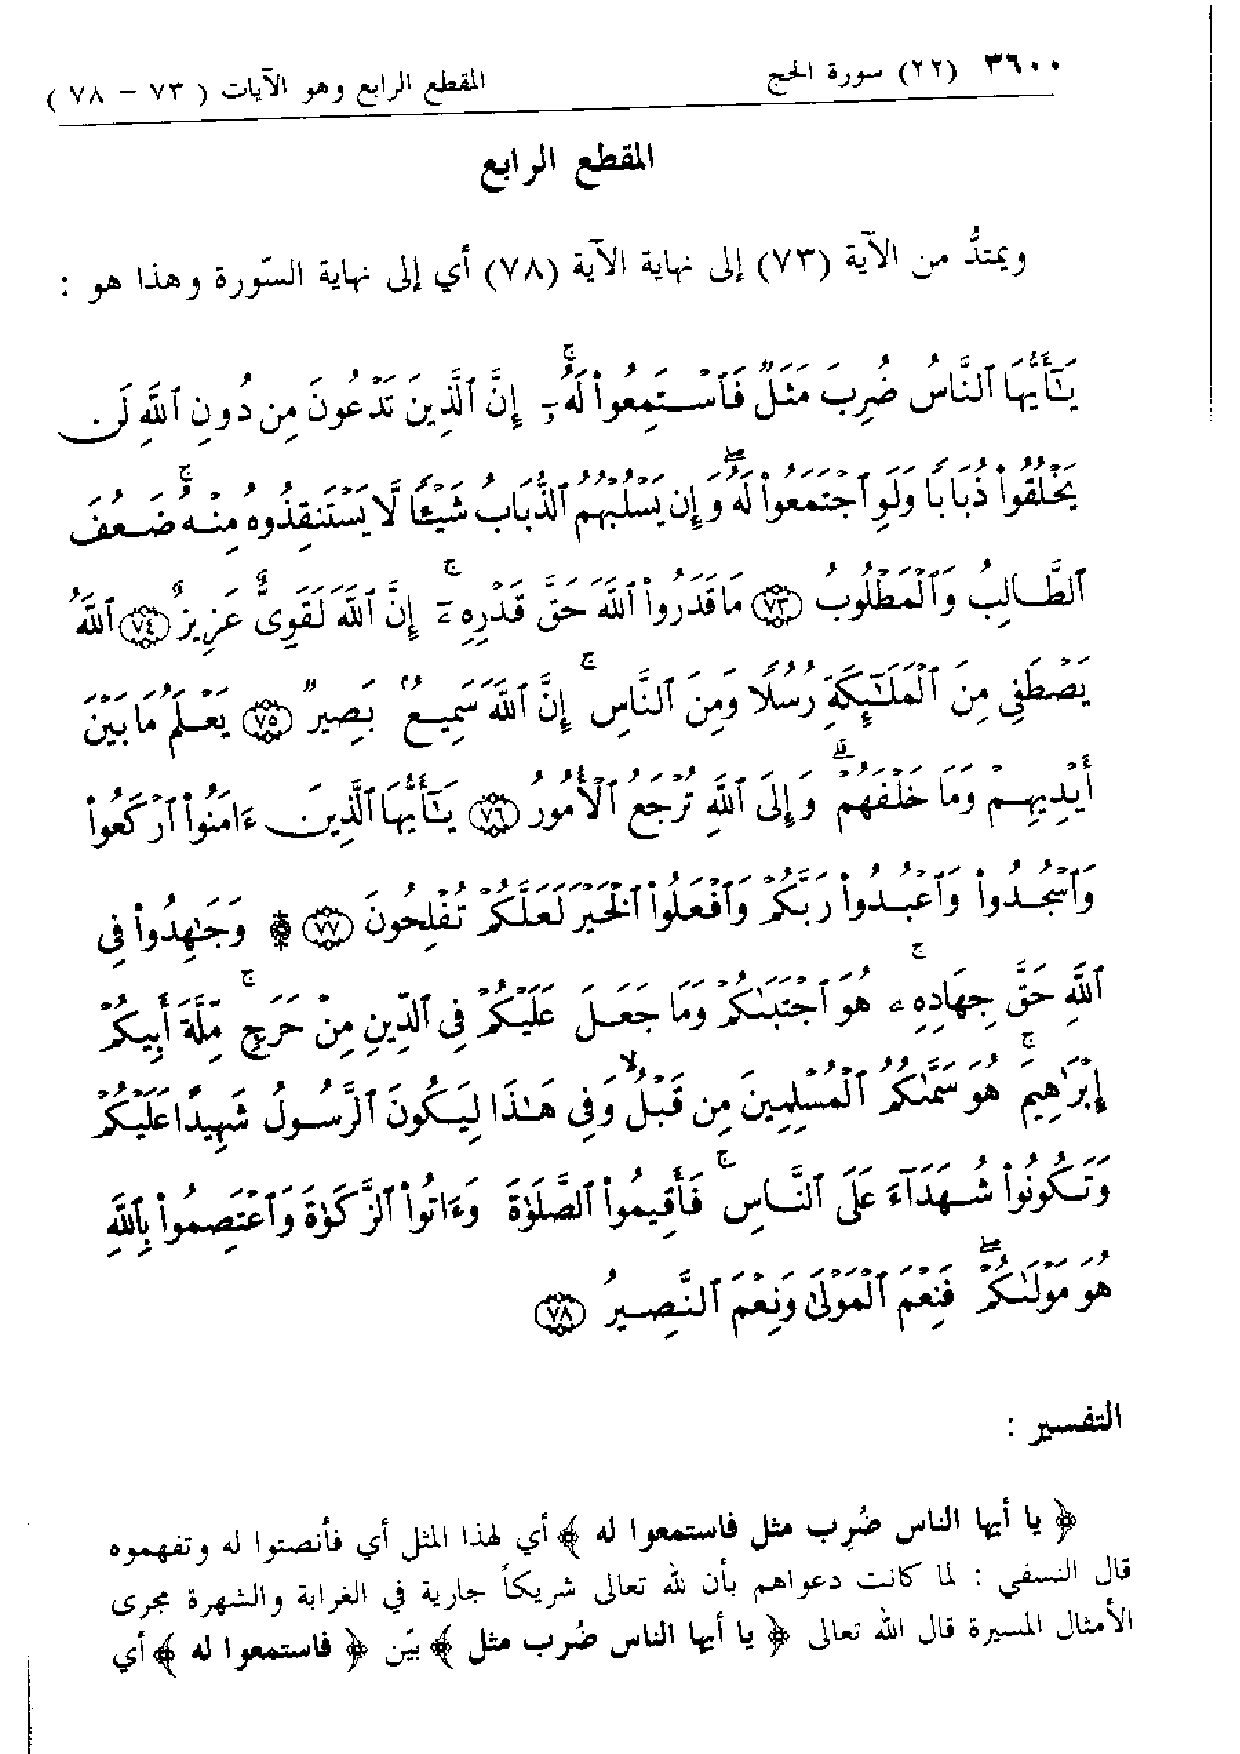 ٣٦٠٠ (٢٢) سورة الحج المقطع الرابع وهو الآيات ( ٧٣ – ٧٨ )
المقطع الرابع
ويمتدُّ من الآية (٧٣) إلى نهاية الآية (٧٨) أي إلى نهاية السّورة وهذا هو :
يَـٰٓأَيُّهَا ٱلنَّاسُ ضُرِبَ مَثَلٌ فَٱسْتَمِعُوا۟ لَهُۥٓ ۚ إِنَّ ٱلَّذِينَ تَدْعُونَ مِن دُونِ ٱللَّهِ لَن
يَخْلُقُوا۟ ذُبَابًا وَلَوِ ٱجْتَمَعُوا۟ لَهُۥ ۖ وَإِن يَسْلُبْهُمُ ٱلذُّبَابُ شَيْـًٔا لَّا يَسْتَنقِذُوهُ مِنْهُ ۚ ضَعُفَ
ٱلطَّالِبُ وَٱلْمَطْلُوبُ ﴿٧٣﴾ مَا قَدَرُوا۟ ٱللَّهَ حَقَّ قَدْرِهِۦٓ ۚ إِنَّ ٱللَّهَ لَقَوِىٌّ عَزِيزٌ ﴿٧٤﴾ ٱللَّهُ
يَصْطَفِى مِنَ ٱلْمَلَـٰٓئِكَةِ رُسُلًا وَمِنَ ٱلنَّاسِ ۚ إِنَّ ٱللَّهَ سَمِيعٌۢ بَصِيرٌ ﴿٧٥﴾ يَعْلَمُ مَا بَيْنَ
أَيْدِيهِمْ وَمَا خَلْفَهُمْ ۗ وَإِلَى ٱللَّهِ تُرْجَعُ ٱلْأُمُورُ ﴿٧٦﴾ يَـٰٓأَيُّهَا ٱلَّذِينَ ءَامَنُوا۟ ٱرْكَعُوا۟
وَٱسْجُدُوا۟ وَٱعْبُدُوا۟ رَبَّكُمْ وَٱفْعَلُوا۟ ٱلْخَيْرَ لَعَلَّكُمْ تُفْلِحُونَ ﴿٧٧﴾ ۩ وَجَـٰهِدُوا۟ فِى
ٱللَّهِ حَقَّ جِهَادِهِۦ ۚ هُوَ ٱجْتَبَىٰكُمْ وَمَا جَعَلَ عَلَيْكُمْ فِى ٱلدِّينِ مِنْ حَرَجٍ ۚ مِّلَّةَ أَبِيكُمْ
إِبْرَٰهِيمَ ۚ هُوَ سَمَّىٰكُمُ ٱلْمُسْلِمِينَ مِن قَبْلُ وَفِى هَـٰذَا لِيَكُونَ ٱلرَّسُولُ شَهِيدًا عَلَيْكُمْ
وَتَكُونُوا۟ شُهَدَآءَ عَلَى ٱلنَّاسِ ۚ فَأَقِيمُوا۟ ٱلصَّلَوٰةَ وَءَاتُوا۟ ٱلزَّكَوٰةَ وَٱعْتَصِمُوا۟ بِٱللَّهِ
هُوَ مَوْلَىٰكُمْ ۖ فَنِعْمَ ٱلْمَوْلَىٰ وَنِعْمَ ٱلنَّصِيرُ ﴿٧٨﴾
التفسير :
﴿ يا أيها الناس ضُرِب مثل فاستمعوا له ﴾ أي لهذا المثل أي فأنصتوا له وتفهموه
قال النسفي : لما كانت دعواهم بأن لله تعالى شريكاً جارية في الغرابة والشهرة مجرى
الأمثال المسيرة قال الله تعالى ﴿ يا أيها الناس ضُرب مثل ﴾ بيّن ﴿ فاستمعوا له ﴾ أي